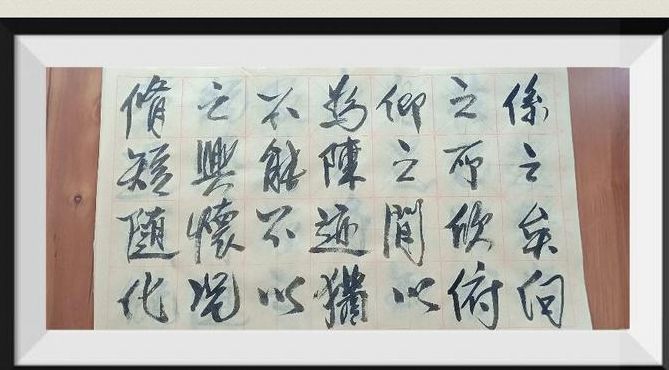 係之矣向
之所欣俯
仰之間以
為陳迹猶
不能不以
之興懷況
脩短隨化